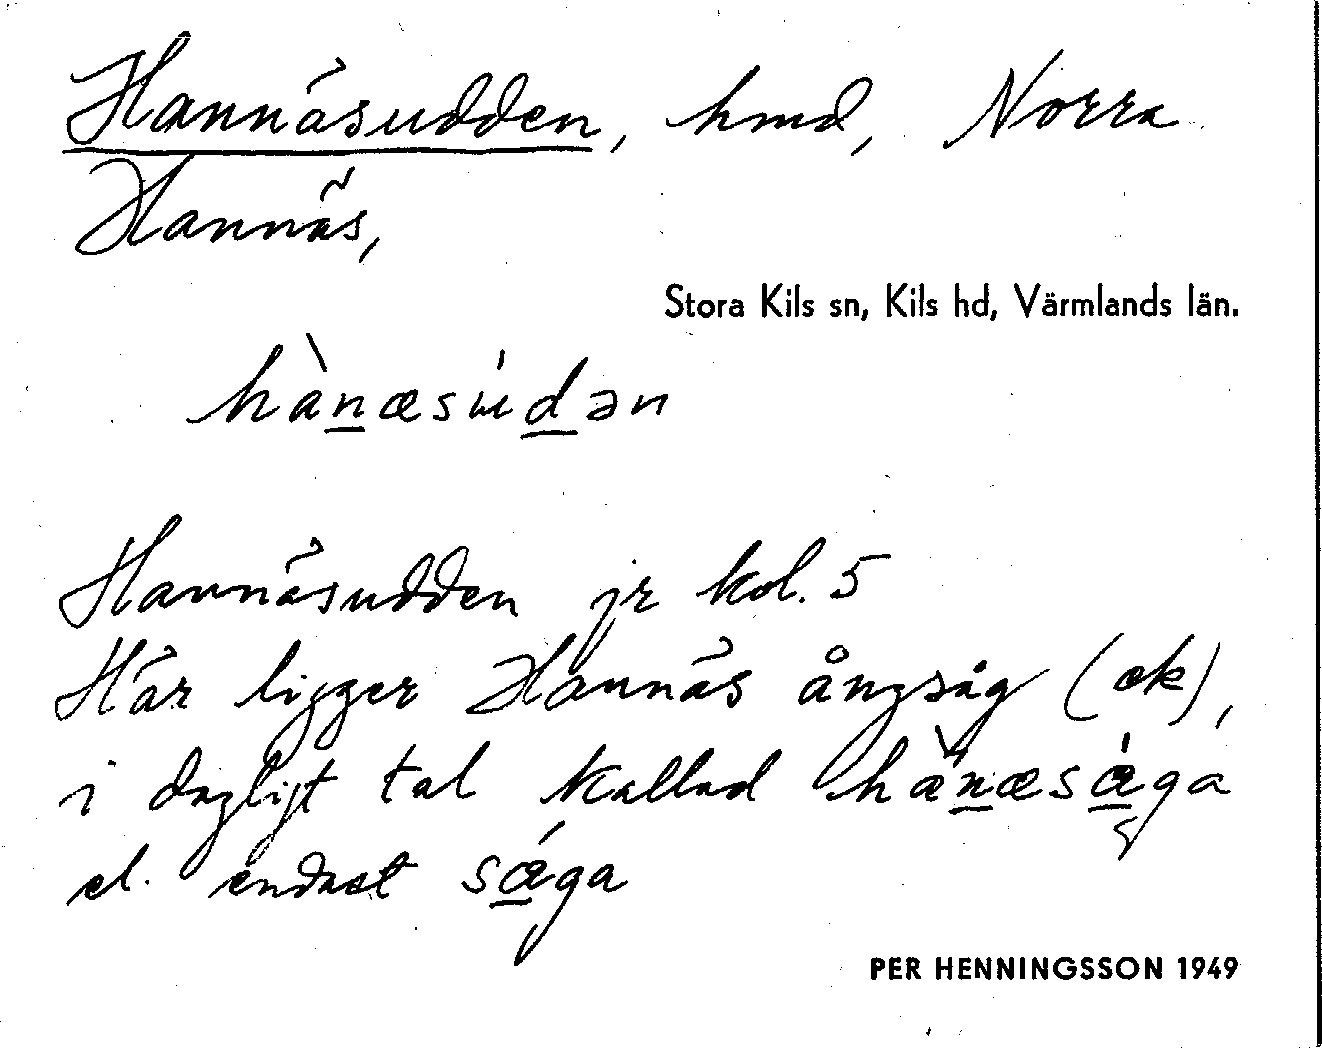 Hannäsudden, hmd, Norra
Hannäs,
Stora Kils sn, Kils hd, Värmlands län.
hànæsúdən
Hannäsudden jr kol. 5
Här ligger Hannäs ångsåg (ek),
i dagligt tal kallad hànæsǽga
el. endast sǽga
PER HENNINGSSON 1949